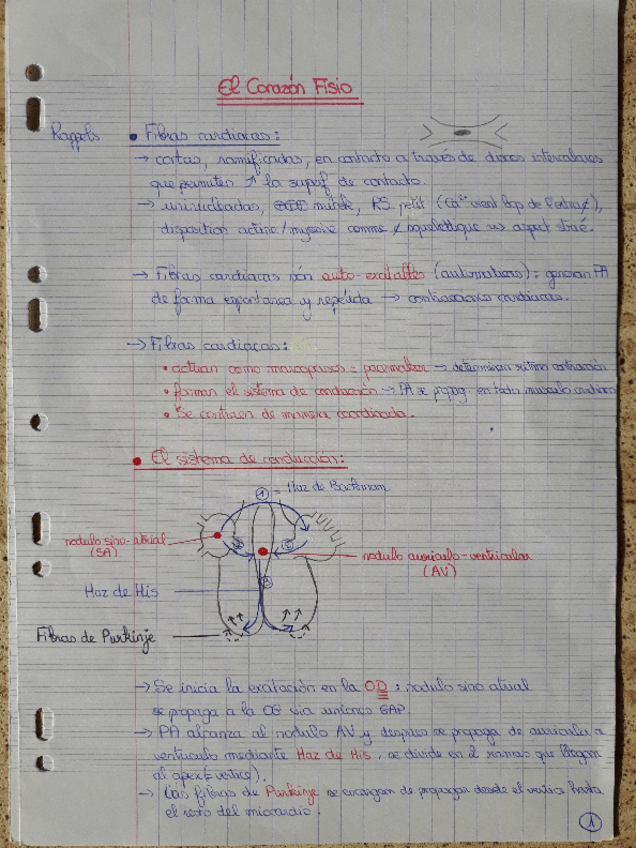 El Corazón Fisio
Rappels • Fibras cardiacas :
→ cortas, ramificadas, en contacto a través de discos intercalares
que permiten ↗ la superf de contacto.
→ uninucleadas, mitok, RS petit (Ca²⁺ vient bcp de l'extra¢),
disposition actine/myosine comme ¢ squelettique => aspect strié.
→ Fibras cardiacas són auto-excitables (automatismo) : generan PA
de forma espontanea y repetida → contracciones cardiacas.
→ Fibras cardiacas :
• actuan como marcapasos = pacemaker → determinan ritmo contracción
• forman el sistema de conducción → PA se propag. en todo musculo cardiaco
• Se contraen de manera coordinada.
• El sistema de conducción :
① = Haz de Bachmann
nodulo sino-atrial
(SA)
nodulo auriculo-ventricular
(AV)
Haz de His
Fibras de Purkinje
→ Se inicia la excitación en la OD : nodulo sino atrial
se propaga a la OG via uniones GAP.
→ PA alcanza al nodulo AV y despues se propaga de auricula a
ventriculo mediante Haz de His, se divide en 2 ramas que llegan
al apex (= vertice).
→ Las fibras de Purkinje se encargan de propagar desde el vertice hasta
el resto del miocardio.
1